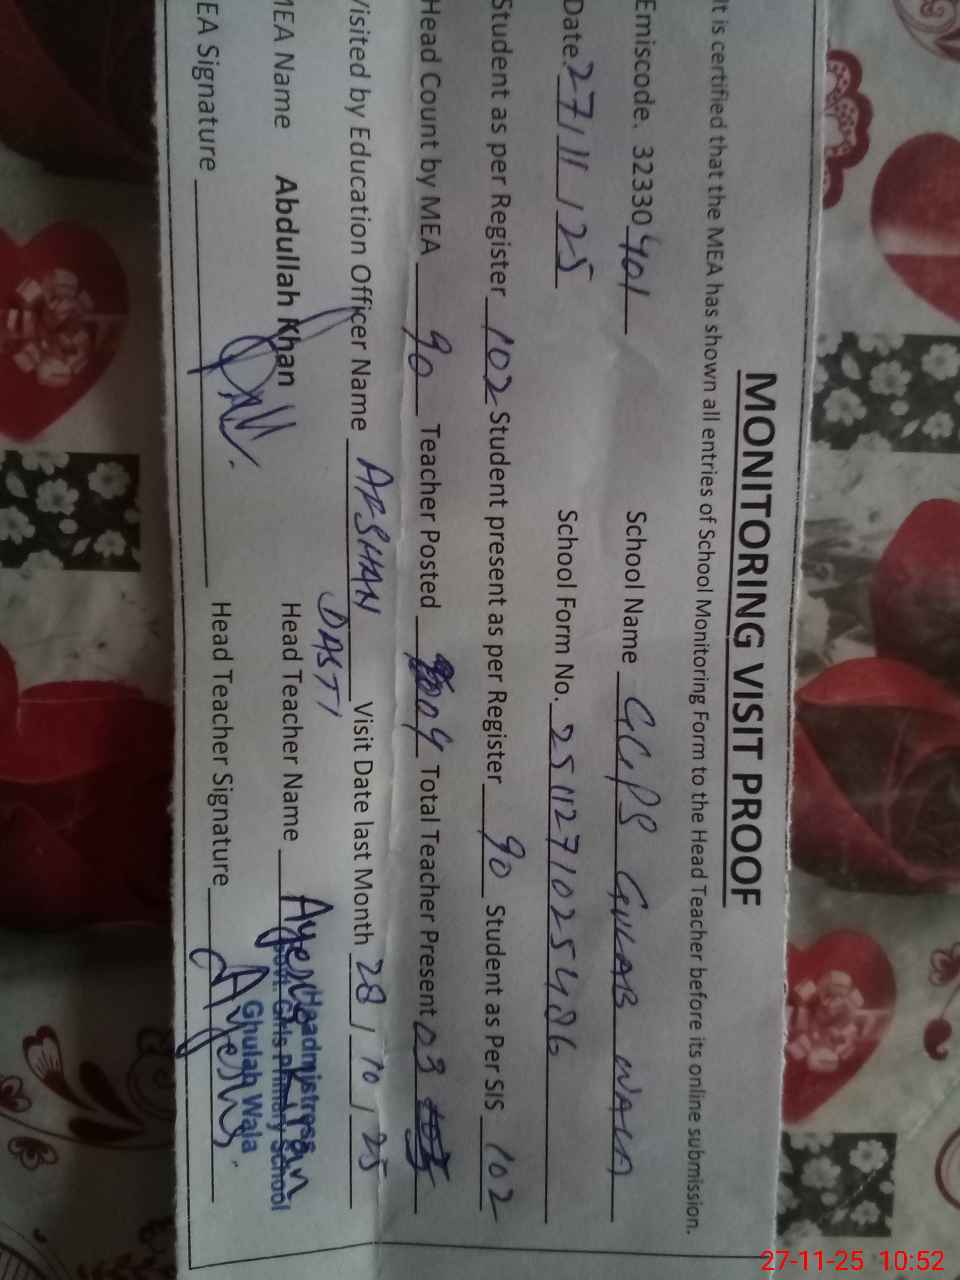 MONITORING VISIT PROOF
It is certified that the MEA has shown all entries of School Monitoring Form to the Head Teacher before its online submission.
Emiscode. 32330401 School Name GGPS GULAB WALA
Date. 27/11/25 School Form No. 2511271025486
Student as per Register 102 Student present as per Register 90 Student as Per SIS 102
Head Count by MEA 90 Teacher Posted 04 Total Teacher Present 03
Visited by Education Officer Name ARSHAN DASTI Visit Date last Month 28/10/25
MEA Name Abdullah Khan Head Teacher Name Ayesha
EA Signature Head Teacher Signature Ayesha
Headmistress
Govt. Girls Primary School
Ghulab Wala
27-11-25 10:52